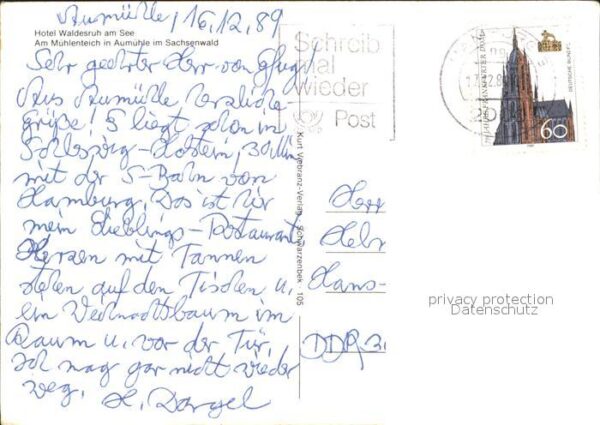 Aumühle, 16.12.89
Hotel Waldesruh am See
Am Mühlenteich in Aumühle im Sachsenwald
Sehr geehrter Herr von
Aus Aumühle herzliche
Grüße! Es liegt schon in
Schleswig-Holstein, 30 Min
mit der S-Bahn von
Hamburg. Das ist hier
mein Lieblings-Restaurant
Kerzen mit Tannen
stehen auf den Tischen u.
ein Weihnachtsbaum im
Raum u. vor der Tür,
ich mag gar nicht wieder
weg. H. Dargel
Schreib
mal
wieder
Post
Kurt Viebranz-Verlag · Schwarzenbek 105
750 JAHRE FRANKFURTER DOM
DEUTSCHE BUNDESPOST
60
Herr
Hans-
DDR
privacy protection
Datenschutz